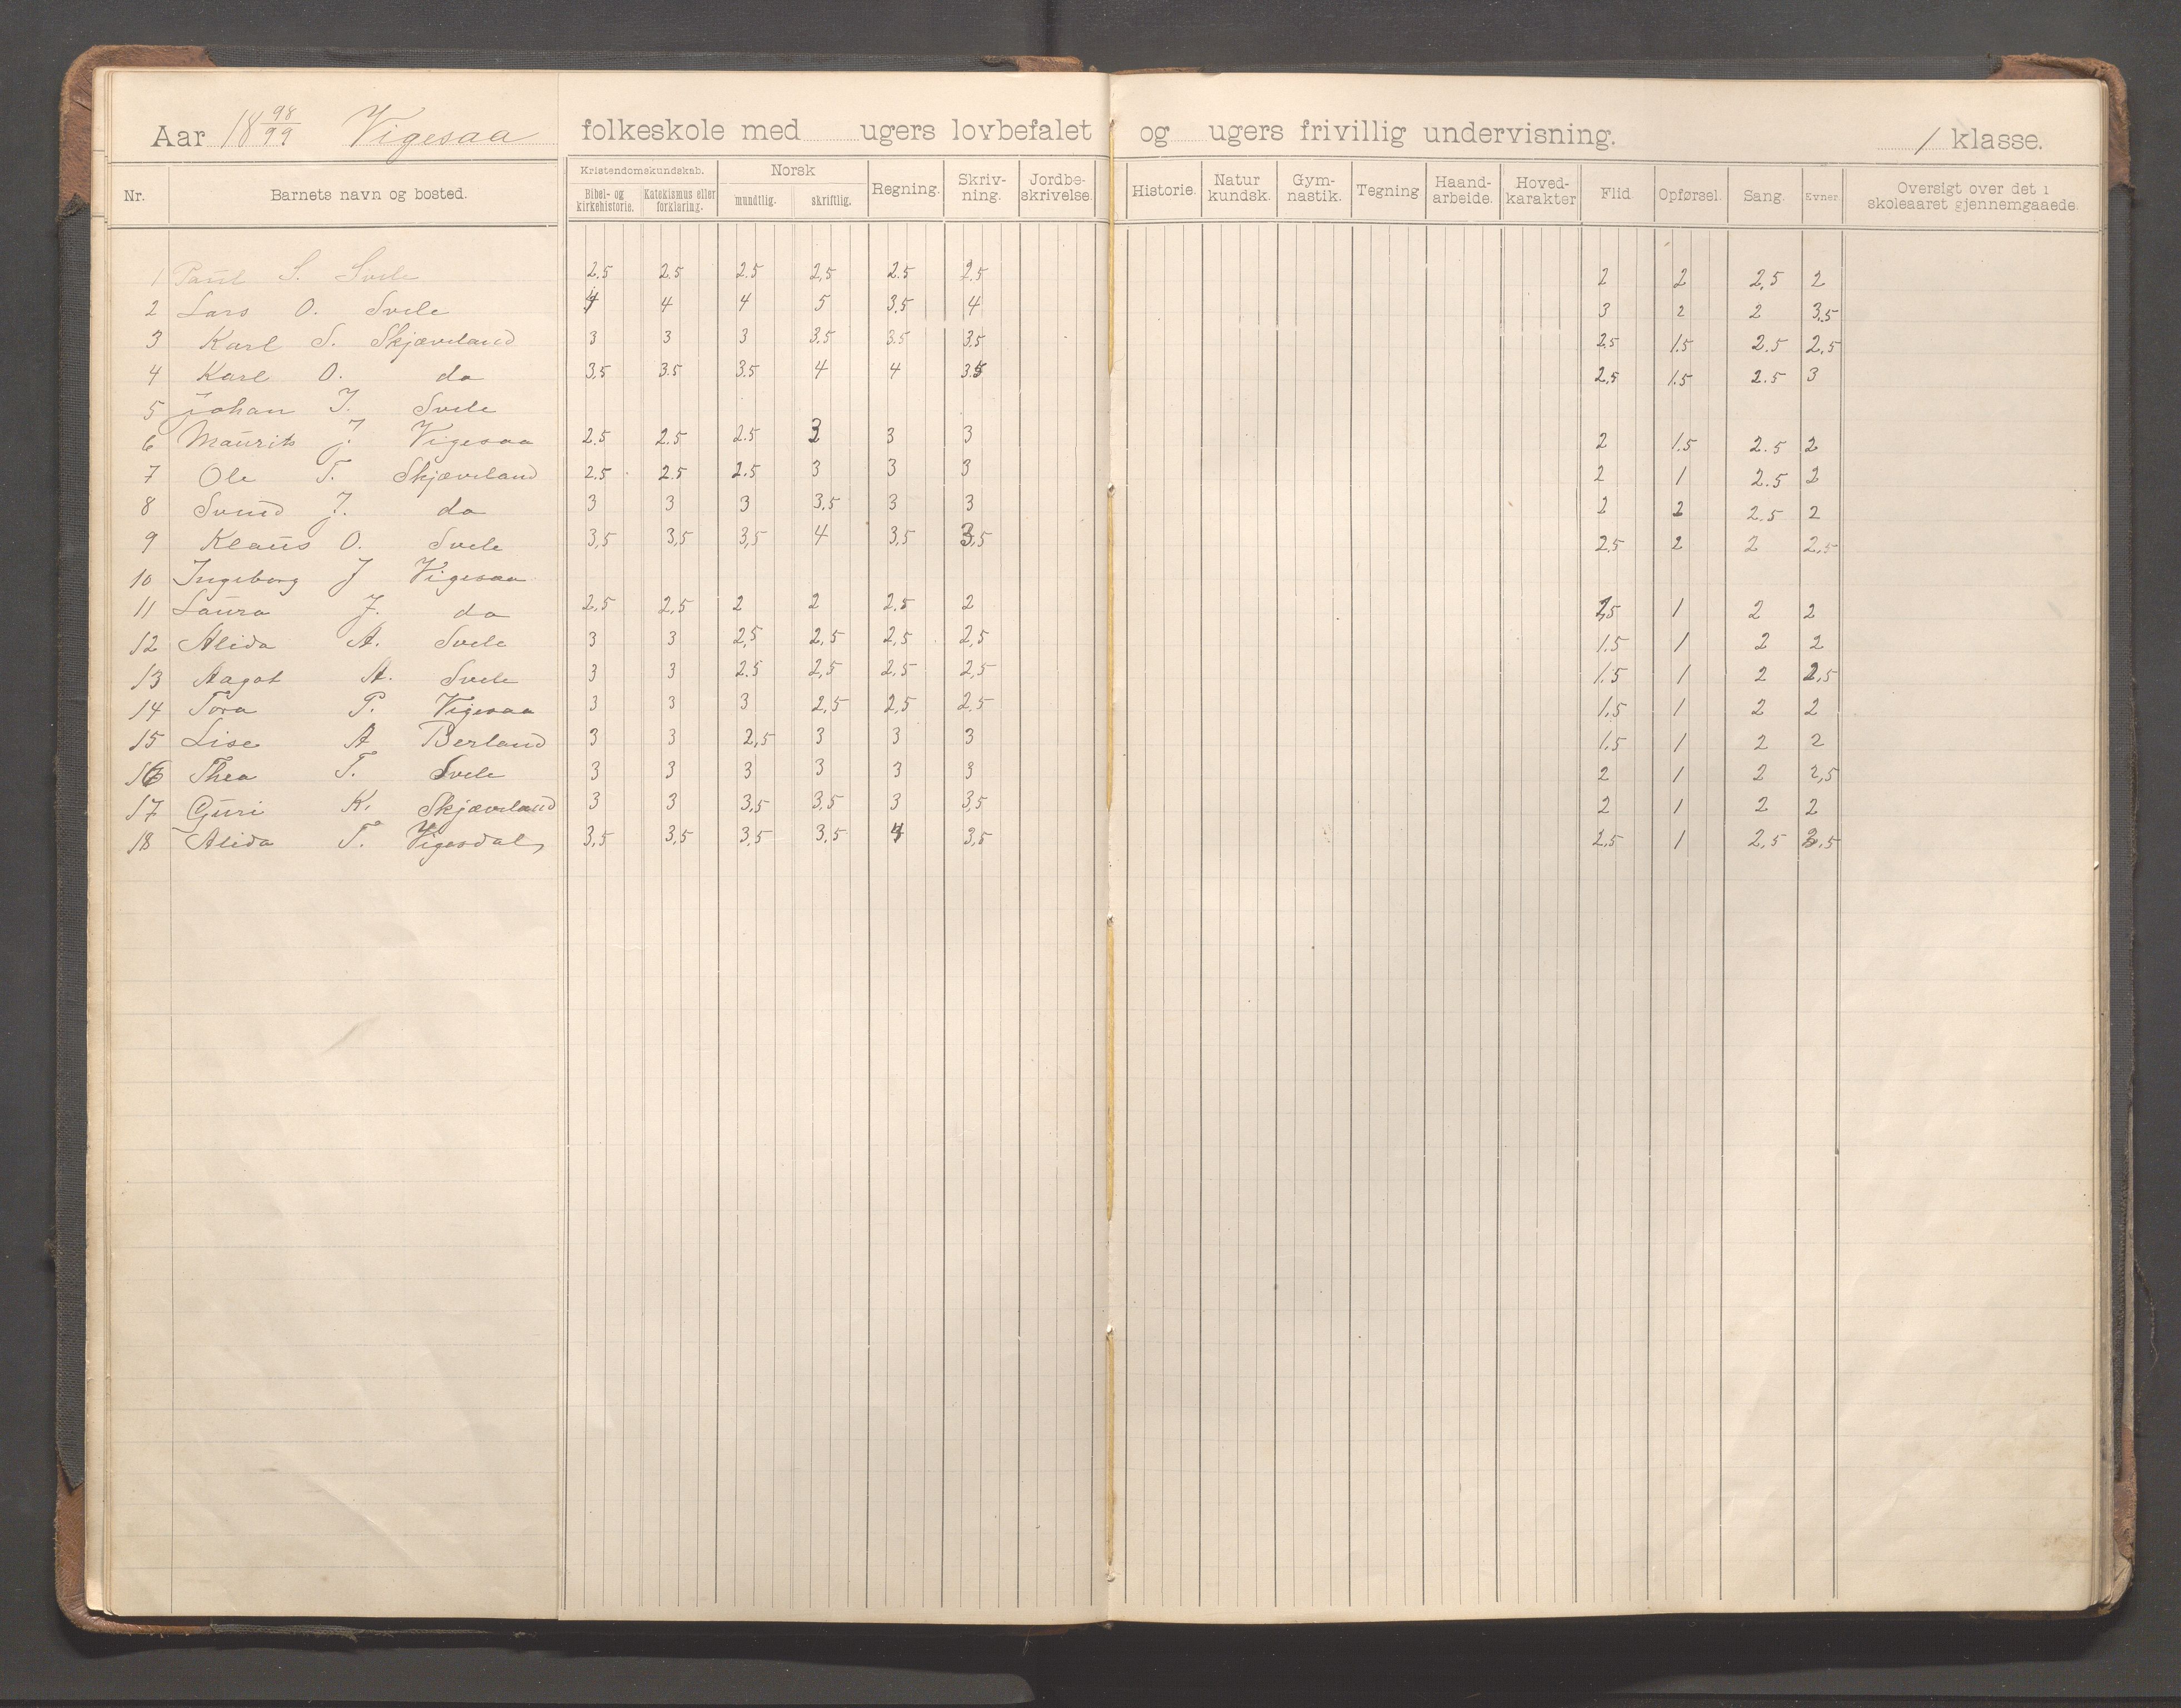 Aar 18 98/99 Vigesaa folkeskole med ugers lovbefalet og ugers frivillig undervisning. / klasse.
Nr. Barnets navn og bosted. Kristendomskundskab. Bibel- og kirkehistorie. Katekismus eller forklaring. Norsk mundtlig. skriftlig. Regning. Skriv-ning. Jordbe-skrivelse. Historie. Natur kundsk. Gym-nastik. Tegning Haand-arbeide. Hoved-karakter Flid. Opførsel. Sang. Evner. Oversigt over det i skoleaaret gjennemgaaede.
1 Paul S. Svele 2.5 2.5 2.5 2,5 2.5 2.5 2 2 2,5 2
2 Lars O. Svele 4 4 4 5 3.5 4 3 2 2 3.5
3 Karl S. Skjæveland 3 3 3 3.5 3.5 3.5 2.5 1.5 2.5 2,5
4 Karl O. do 3,5 3.5 3.5 4 4 3.5 2,5 1.5 2.5 3
5 Johan I. Svele
6 Maurits J. Vigesaa 2.5 2.5 2.5 3 3 3 2 1.5 2.5 2
7 Ole T. Skjæveland 2,5 2.5 2.5 3 3 3 2 1 2.5 2
8 Svend J. do 3 3 3 3,5 3 3 2 2 2.5 2
9 Klaus O. Svele 3,5 3,5 3,5 4 3,5 3,5 2,5 2 2 2,5
10 Ingeborg J Vigesaa
11 Laura J. do 2,5 2,5 2 2 2,5 2 1,5 1 2 2
12 Alida A. Svele 3 3 2,5 2,5 2,5 2,5 1.5 1 2 2
13 Aagot A. Svele 3 3 2.5 2,5 2,5 2,5 1.5 1 2 2,5
14 Tora P. Vigesaa 3 3 3 2,5 2,5 2,5 1,5 1 2 2
15 Lise A Berland 3 3 2,5 3 3 3 1.5 1 2 2
16 Thea T. Svele 3 3 3 3 3 3 2 1 2 2,5
17 Guri K. Skjæveland 3 3 3,5 3,5 3 3,5 2 1 2 2
18 Alida T. Vigesdal 3,5 3,5 3,5 3,5 4 3,5 2,5 1 2,5 3,5